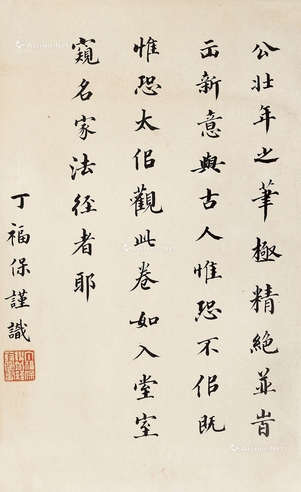 公壯年之筆極精絕並岀
新意與古人惟恐不佀既
惟恐太佀觀此卷如入堂室
窺名家法径者耶
丁福保謹識